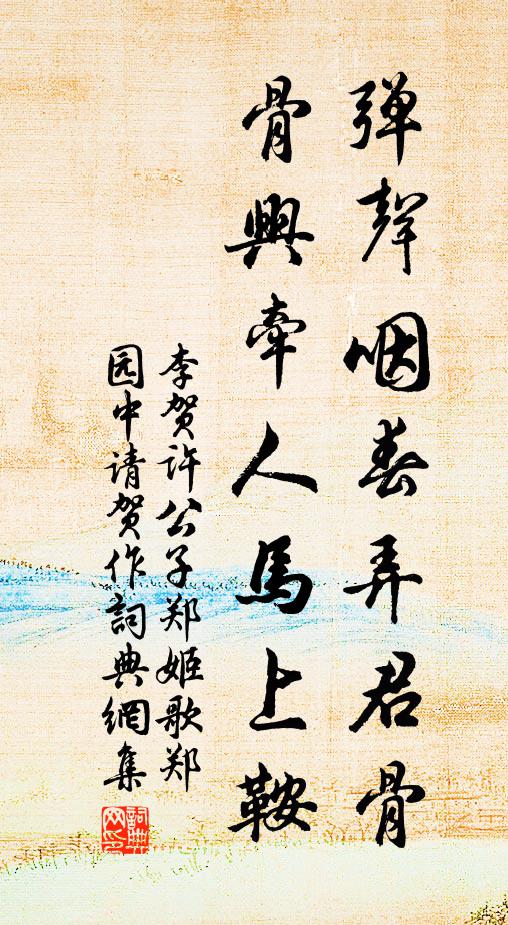 弹聲咽春弄君骨
骨興牽人馬上鞍
李贺許公子郑姬歌郑
园中请贺作詞典網集
詞典
网